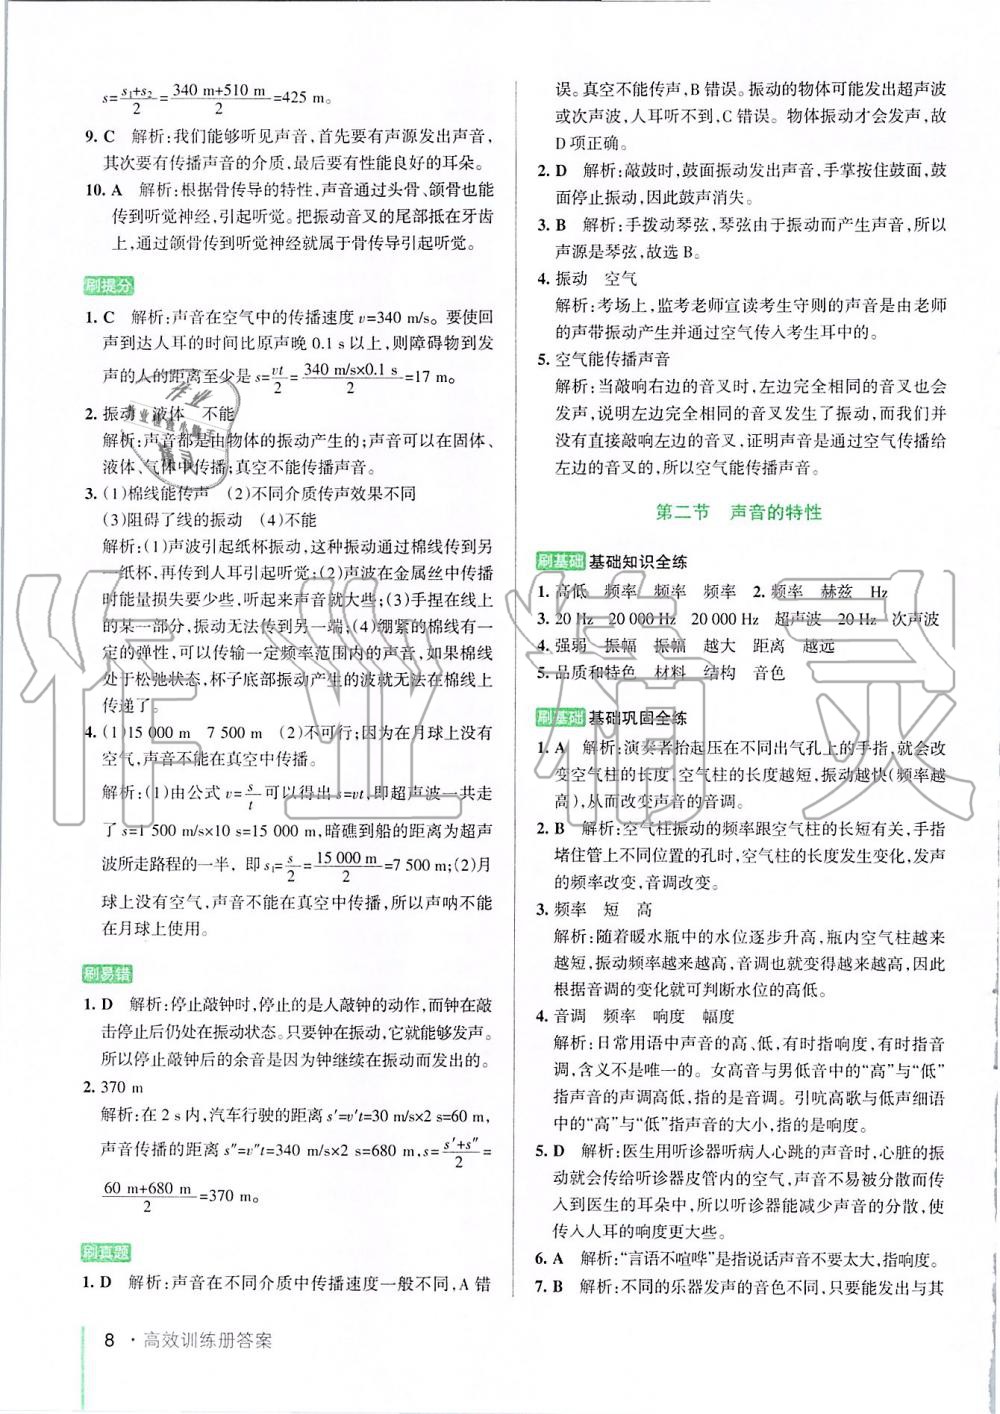 s=(s₁+s₂)/2=(340 m+510 m)/2=425 m。
9. C　解析:我们能够听见声音,首先要有声源发出声音,
其次要有传播声音的介质,最后要有性能良好的耳朵。
10. A　解析:根据骨传导的特性,声音通过头骨、颌骨也能
传到听觉神经,引起听觉。把振动音叉的尾部抵在牙齿
上,通过颌骨传到听觉神经就属于骨传导引起听觉。
刷提分
1. C　解析:声音在空气中的传播速度 v=340 m/s。要使回
声到达人耳的时间比原声晚 0.1 s 以上,则障碍物到发
声的人的距离至少是 s=vt/2=(340 m/s×0.1 s)/2=17 m。
2. 振动　液体　不能
解析:声音都是由物体的振动产生的;声音可以在固体、
液体、气体中传播;真空不能传播声音。
3. (1)棉线能传声　(2)不同介质传声效果不同
(3)阻碍了线的振动　(4)不能
解析:(1)声波引起纸杯振动,这种振动通过棉线传到另
一纸杯,再传到人耳引起听觉;(2)声波在金属丝中传播
时能量损失要少些,所以听起来声音就大些;(3)手捏在线上
的某一部分,振动无法传到另一端;(4)绷紧的棉线有一
定的弹性,可以传输一定频率范围内的声音,如果棉线
处于松弛状态,杯子底部振动产生的波就无法在棉线上
传递了。
4. (1)15 000 m　7 500 m　(2)不可行;因为在月球上没有
空气,声音不能在真空中传播。
解析:(1)由公式 v=s/t 可以得出 s=vt,即超声波一共走
了 s=1 500 m/s×10 s=15 000 m,暗礁到船的距离为超声
波所走路程的一半,即 s₁=s/2=15 000 m/2=7 500 m;(2)月
球上没有空气,声音不能在真空中传播,所以声呐不能
在月球上使用。
刷易错
1. D　解析:停止敲钟时,停止的是人敲钟的动作,而钟在敲
击停止后仍处在振动状态。只要钟在振动,它就能够发声。
所以停止敲钟后的余音是因为钟继续在振动而发出的。
2. 370 m
解析:在 2 s 内,汽车行驶的距离 s′=v′t=30 m/s×2 s=60 m,
声音传播的距离 s″=v″t=340 m/s×2 s=680 m,s=(s′+s″)/2=
(60 m+680 m)/2=370 m。
刷真题
1. D　解析:声音在不同介质中传播速度一般不同,A 错
误。真空不能传声,B 错误。振动的物体可能发出超声波
或次声波,人耳听不到,C 错误。物体振动才会发声,故
D 项正确。
2. D　解析:敲鼓时,鼓面振动发出声音,手掌按住鼓面,鼓
面停止振动,因此鼓声消失。
3. B　解析:手拨动琴弦,琴弦由于振动而产生声音,所以
声源是琴弦,故选 B。
4. 振动　空气
解析:考场上,监考老师宣读考生守则的声音是由老师
的声带振动产生并通过空气传入考生耳中的。
5. 空气能传播声音
解析:当敲响右边的音叉时,左边完全相同的音叉也会
发声,说明左边完全相同的音叉发生了振动,而我们并
没有直接敲响左边的音叉,证明声音通过空气传播给
左边的音叉的,所以空气能传播声音。
第二节　声音的特性
刷基础 基础知识全练
1. 高低　频率　频率　频率　2. 频率　赫兹　Hz
3. 20 Hz　20 000 Hz　20 000 Hz　超声波　20 Hz　次声波
4. 强弱　振幅　振幅　越大　距离　越远
5. 品质和特色　材料　结构　音色
刷基础 基础巩固全练
1. A　解析:演奏者抬起压在不同出气孔上的手指,就会改
变空气柱的长度,空气柱的长度越短,振动越快(频率越
高),从而改变声音的音调。
2. B　解析:空气柱振动的频率跟空气柱的长短有关,手指
堵住管上不同位置的孔时,空气柱的长度发生变化,发声
的频率改变,音调改变。
3. 频率　短　高
解析:随着暖水瓶中的水位逐步升高,瓶内空气柱越来
越短,振动频率越来越高,音调也就变得越来越高,因此
根据音调的变化就可判断水位的高低。
4. 音调　频率　响度　幅度
解析:日常用语中声音的高、低,有时指响度,有时指音
调,含义不是唯一的。女高音与男低音中的“高”与“低”
指声音的声调高低,指的是音调。引吭高歌与低声细语
中的“高”与“低”指声音的大小,指的是响度。
5. D　解析:医生用听诊器听病人心跳的声音时,心脏的振
动就会传给听诊器皮管内的空气,声音不易被分散而传
入到医生的耳朵中,所以听诊器能减少声音的分散,使
传入人耳的响度更大些。
6. A　解析:“言语不喧哗”是指说话声音不要太大,指响度。
7. B　解析:不同的乐器发声的音色不同,只要能发出与其
8 · 高效训练册答案
作业精灵